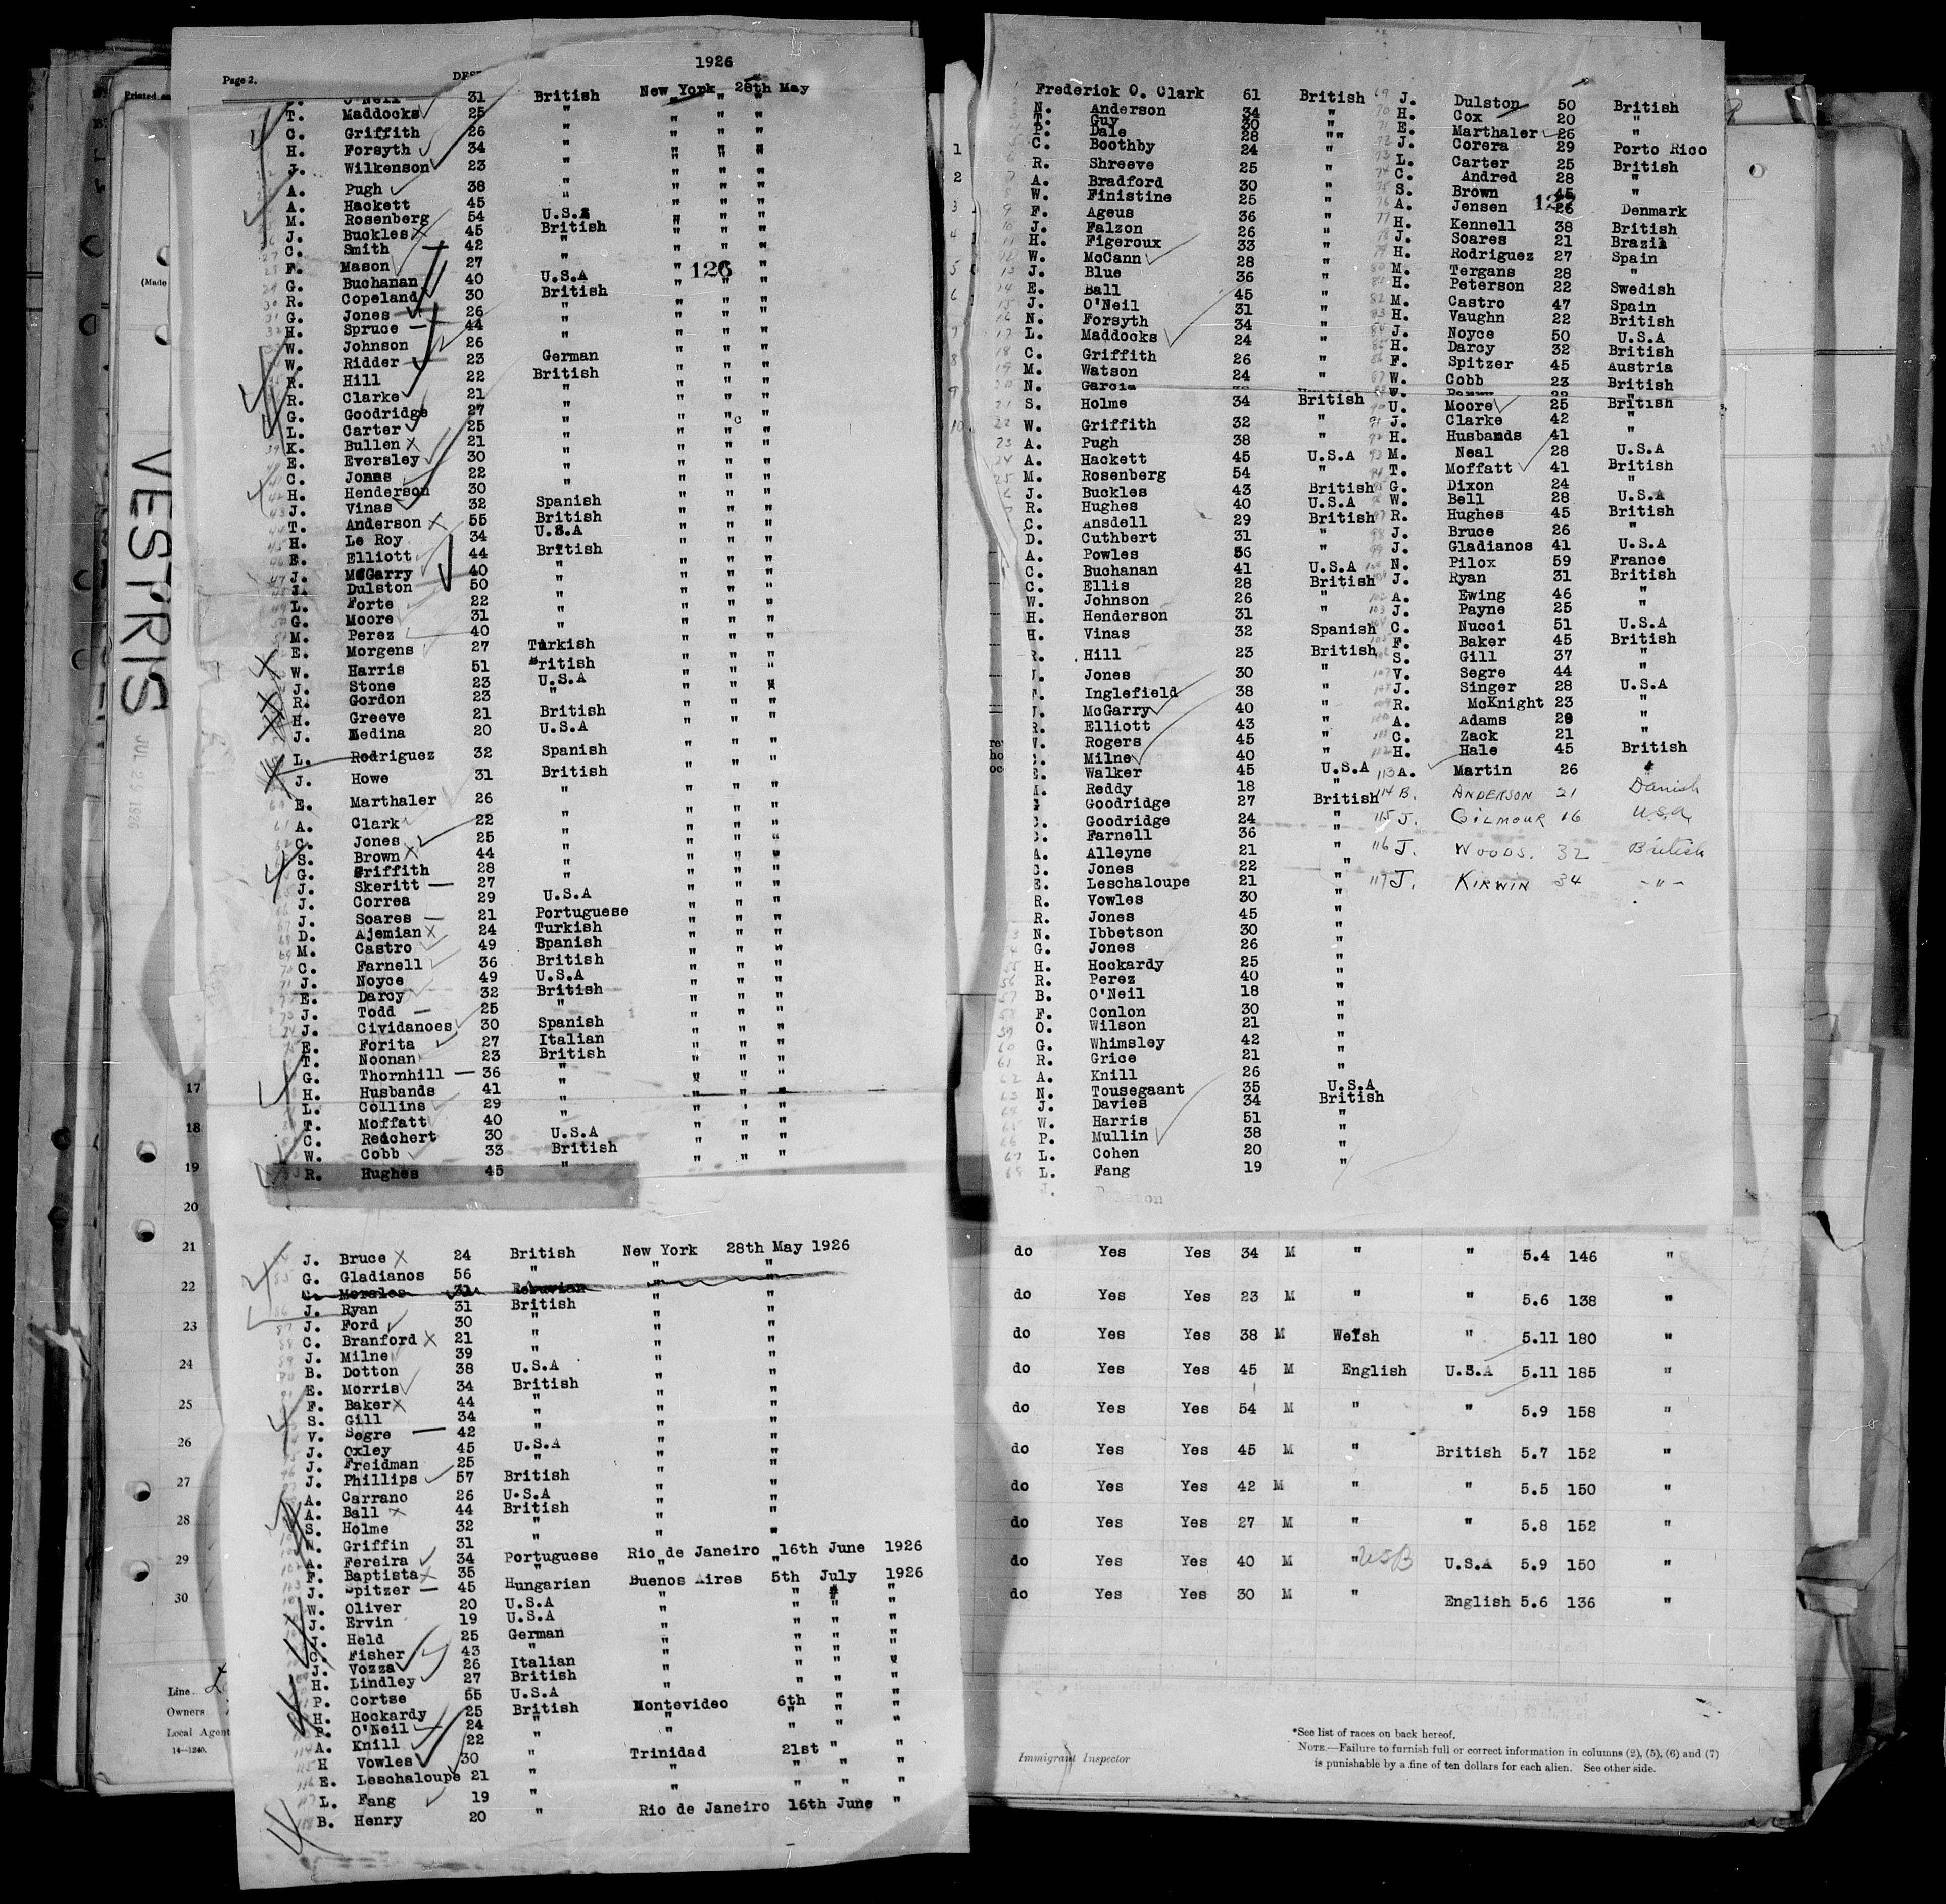 1926
Page 2.
T. Maddocks 25 " " " "
C. Griffith 26 " " " "
H. Forsyth 34 " " " "
J. Wilkenson 23 " " " "
A. Pugh 38 " " " "
A. Hackett 45 " " " "
M. Rosenberg 54 U.S.A " " "
J. Buckles 45 British " " "
C. Smith 42 " " " "
F. Mason 27 " " " "
126
G. Buchanan 40 U.S.A " " "
R. Copeland 30 British " " "
G. Jones 26 " " " "
H. Spruce 44 " " " "
W. Johnson 26 " " " "
W. Ridder 23 German " " "
R. Hill 22 British " " "
R. Clarke 21 " " " "
G. Goodridge 27 " " " "
L. Carter 25 " " " "
K. Bullen 21 " " " "
E. Eversley 30 " " " "
C. Jonas 22 " " " "
H. Henderson 30 " " " "
J. Vinas 32 Spanish " " "
T. Anderson 55 British " " "
H. Le Roy 34 U.S.A " " "
E. Elliott 44 British " " "
J. McGarry 40 " " " "
J. Dulston 50 " " " "
L. Forte 22 " " " "
G. Moore 31 " " " "
M. Perez 40 " " " "
E. Morgens 27 Turkish " " "
W. Harris 51 British " " "
J. Stone 23 U.S.A " " "
R. Gordon 23 " " " "
H. Greeve 21 British " " "
J. Medina 20 U.S.A " " "
L. Rodriguez 32 Spanish " " "
J. Howe 31 British " " "
E. Marthaler 26 " " " "
A. Clark 22 " " " "
C. Jones 25 " " " "
S. Brown 44 " " " "
G. Griffith 28 " " " "
J. Skeritt 27 " " " "
J. Correa 29 U.S.A " " "
J. Soares 21 Portuguese " " "
D. Ajemian 24 Turkish " " "
M. Castro 49 Spanish " " "
C. Farnell 36 British " " "
J. Noyce 49 U.S.A " " "
E. Darcy 32 British " " "
J. Todd 25 " " " "
J. Cividanoes 30 Spanish " " "
E. Forita 27 Italian " " "
T. Noonan 23 British " " "
G. Thornhill 36 " " " "
H. Husbands 41 " " " "
L. Collins 29 " " " "
T. Moffatt 40 " " " "
C. Reichert 30 U.S.A " " "
W. Cobb 33 British " " "
R. Hughes 45 " " " "
J. Bruce 24 British New York 28th May 1926
G. Gladianos 56 " " "
J. Ryan 31 British " "
J. Ford 30 " " "
C. Branford 21 " " "
J. Milne 39 " " "
B. Dotton 38 U.S.A " "
E. Morris 34 British " "
F. Baker 44 " " "
S. Gill 34 " " "
V. Segre 42 " " "
J. Oxley 45 U.S.A " "
J. Freidman 25 " " "
J. Phillips 57 British " "
A. Carrano 26 U.S.A " "
A. Ball 44 British " "
S. Holme 32 " " "
N. Griffin 31 " " "
A. Fereira 34 Portuguese Rio de Janeiro 16th June 1926
F. Baptista 35 " " "
J. Spitzer 45 Hungarian Buenos Aires 5th July 1926
W. Oliver 20 U.S.A " " " "
J. Ervin 19 U.S.A " " " "
J. Held 25 German " " " "
C. Fisher 43 " " " " "
J. Vozza 26 Italian " " " "
H. Lindley 27 British " " " "
P. Cortse 55 U.S.A " " " "
H. Hockardy 25 British Montevideo 6th " "
P. O'Neil 24 " " " " "
A. Knill 22 " " " " "
H Vowles 30 " Trinidad 21st " "
E. Leschaloupe 21 " " " " "
L. Fang 19 " " " " "
B. Henry 20 " Rio de Janeiro 16th June "
VESTRIS
JUL 29 1926
(Made
17
18
19
20
21
22
23
24
25
26
27
28
29
30
Line
Owners
Local Agent
14—1240.
1
2
3
4
5
6
7
8
9
10
Frederick O. Clark 61 British
N. Anderson 34 "
T. Guy 30 "
P. Dale 28 "
C. Boothby 24 "
R. Shreeve 25 "
A. Bradford 30 "
W. Finistine 25 "
F. Ageus 36 "
J. Falzon 26 "
H. Figeroux 33 "
W. McCann 28 "
J. Blue 36 "
E. Ball 45 "
J. O'Neil 31 "
N. Forsyth 34 "
L. Maddocks 24 "
C. Griffith 26 "
M. Watson 24 "
N. Garcia
S. Holme 34 British
W. Griffith 32 "
A. Pugh 38 "
A. Hackett 45 U.S.A
M. Rosenberg 54 "
J. Buckles 43 British
R. Hughes 40 U.S.A
C. Ansdell 29 British
D. Cuthbert 31 "
A. Powles 56 "
C. Buchanan 41 U.S.A
C. Ellis 28 British
W. Johnson 26 "
H. Henderson 31 "
H. Vinas 32 Spanish
R. Hill 23 British
Jones 30 "
Inglefield 38 "
McGarry 40 "
R. Elliott 43 "
Rogers 45 "
Milne 40 "
E. Walker 45 U.S.A
Reddy 18 "
Goodridge 27 British
Goodridge 24 "
Farnell 36 "
A. Alleyne 21 "
C. Jones 22 "
E. Leschaloupe 21 "
R. Vowles 30 "
R. Jones 45 "
N. Ibbetson 30 "
G. Jones 26 "
H. Hockardy 25 "
R. Perez 40 "
B. O'Neil 18 "
F. Conlon 30 "
O. Wilson 21 "
G. Whimsley 42 "
R. Grice 21 "
A. Knill 26 "
N. Tousegaant 35 U.S.A
J. Davies 34 British
W. Harris 51 "
P. Mullin 38 "
L. Cohen 20 "
L. Fang 19 "
J. Dulston 50 British
H. Cox 20 "
E. Marthaler 26 "
J. Corera 29 Porto Rico
L. Carter 25 British
C. Andred 28 "
S. Brown 45 "
A. Jensen 26 Denmark
127
H. Kennell 38 British
J. Soares 21 Brazil
H. Rodriguez 27 Spain
M. Tergans 28 "
H. Peterson 22 Swedish
M. Castro 47 Spain
H. Vaughn 22 British
J. Noyce 50 U.S.A
H. Darcy 32 British
F. Spitzer 45 Austria
W. Cobb 23 British
U. Moore 25 British
J. Clarke 42 "
H. Husbands 41 "
M. Neal 28 U.S.A
T. Moffatt 41 British
G. Dixon 24 "
W. Bell 28 U.S.A
R. Hughes 45 British
J. Bruce 26 "
J. Gladianos 41 U.S.A
N. Pilox 59 France
J. Ryan 31 British
A. Ewing 46 "
J. Payne 25 "
C. Nucci 51 U.S.A
F. Baker 45 British
S. Gill 37 "
V. Segre 44 "
J. Singer 28 U.S.A
R. McKnight 23 "
A. Adams 28 "
C. Zack 21 "
H. Hale 45 British
113 A. Martin 26 "
114 B. ANDERSON 21 Danish
115 J. GILMOUR 16 USA
116 J. WOODS. 32 British
117 J. KIRWIN 34 - " -
do Yes Yes 34 M " " 5.4 146 "
do Yes Yes 23 M " " 5.6 138 "
do Yes Yes 38 M Welsh " 5.11 180 "
do Yes Yes 45 M English U.S.A 5.11 185 "
do Yes Yes 54 M " " 5.9 158 "
do Yes Yes 45 M " British 5.7 152 "
do Yes Yes 42 M " " 5.5 150 "
do Yes Yes 27 M " " 5.8 152 "
do Yes Yes 40 M " U.S.A 5.9 150 "
do Yes Yes 30 M " English 5.6 136 "
Immigrant Inspector
*See list of races on back hereof.
NOTE.—Failure to furnish full or correct information in columns (2), (5), (6) and (7)
is punishable by a fine of ten dollars for each alien. See other side.